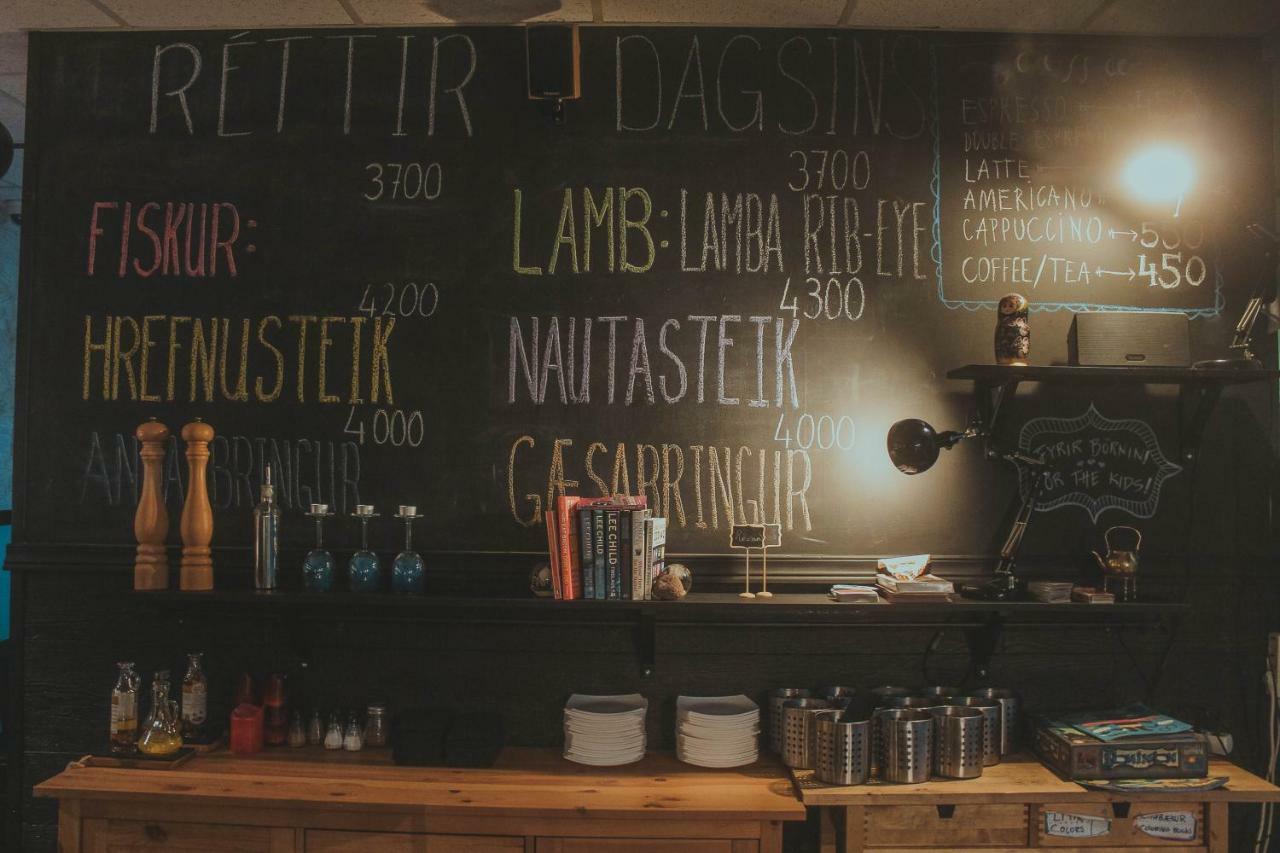 RÉTTIR DAGSINS
3700
FISKUR:
4200
HREFNUSTEIK
4000
3700
LAMB: LAMBA RIB-EYE
4300
NAUTASTEIK
4000
GÆSABRINGUR
ESPRESSO
DOUBLE ESPRESSO
LATTE
AMERICANO
CAPPUCCINO ↔ 550
COFFEE/TEA ↔ 450
FYRIR BÖRNIN!
FOR THE KIDS!
LEE CHILD
LEE CHILD
COLORS
COLORING BOOKS